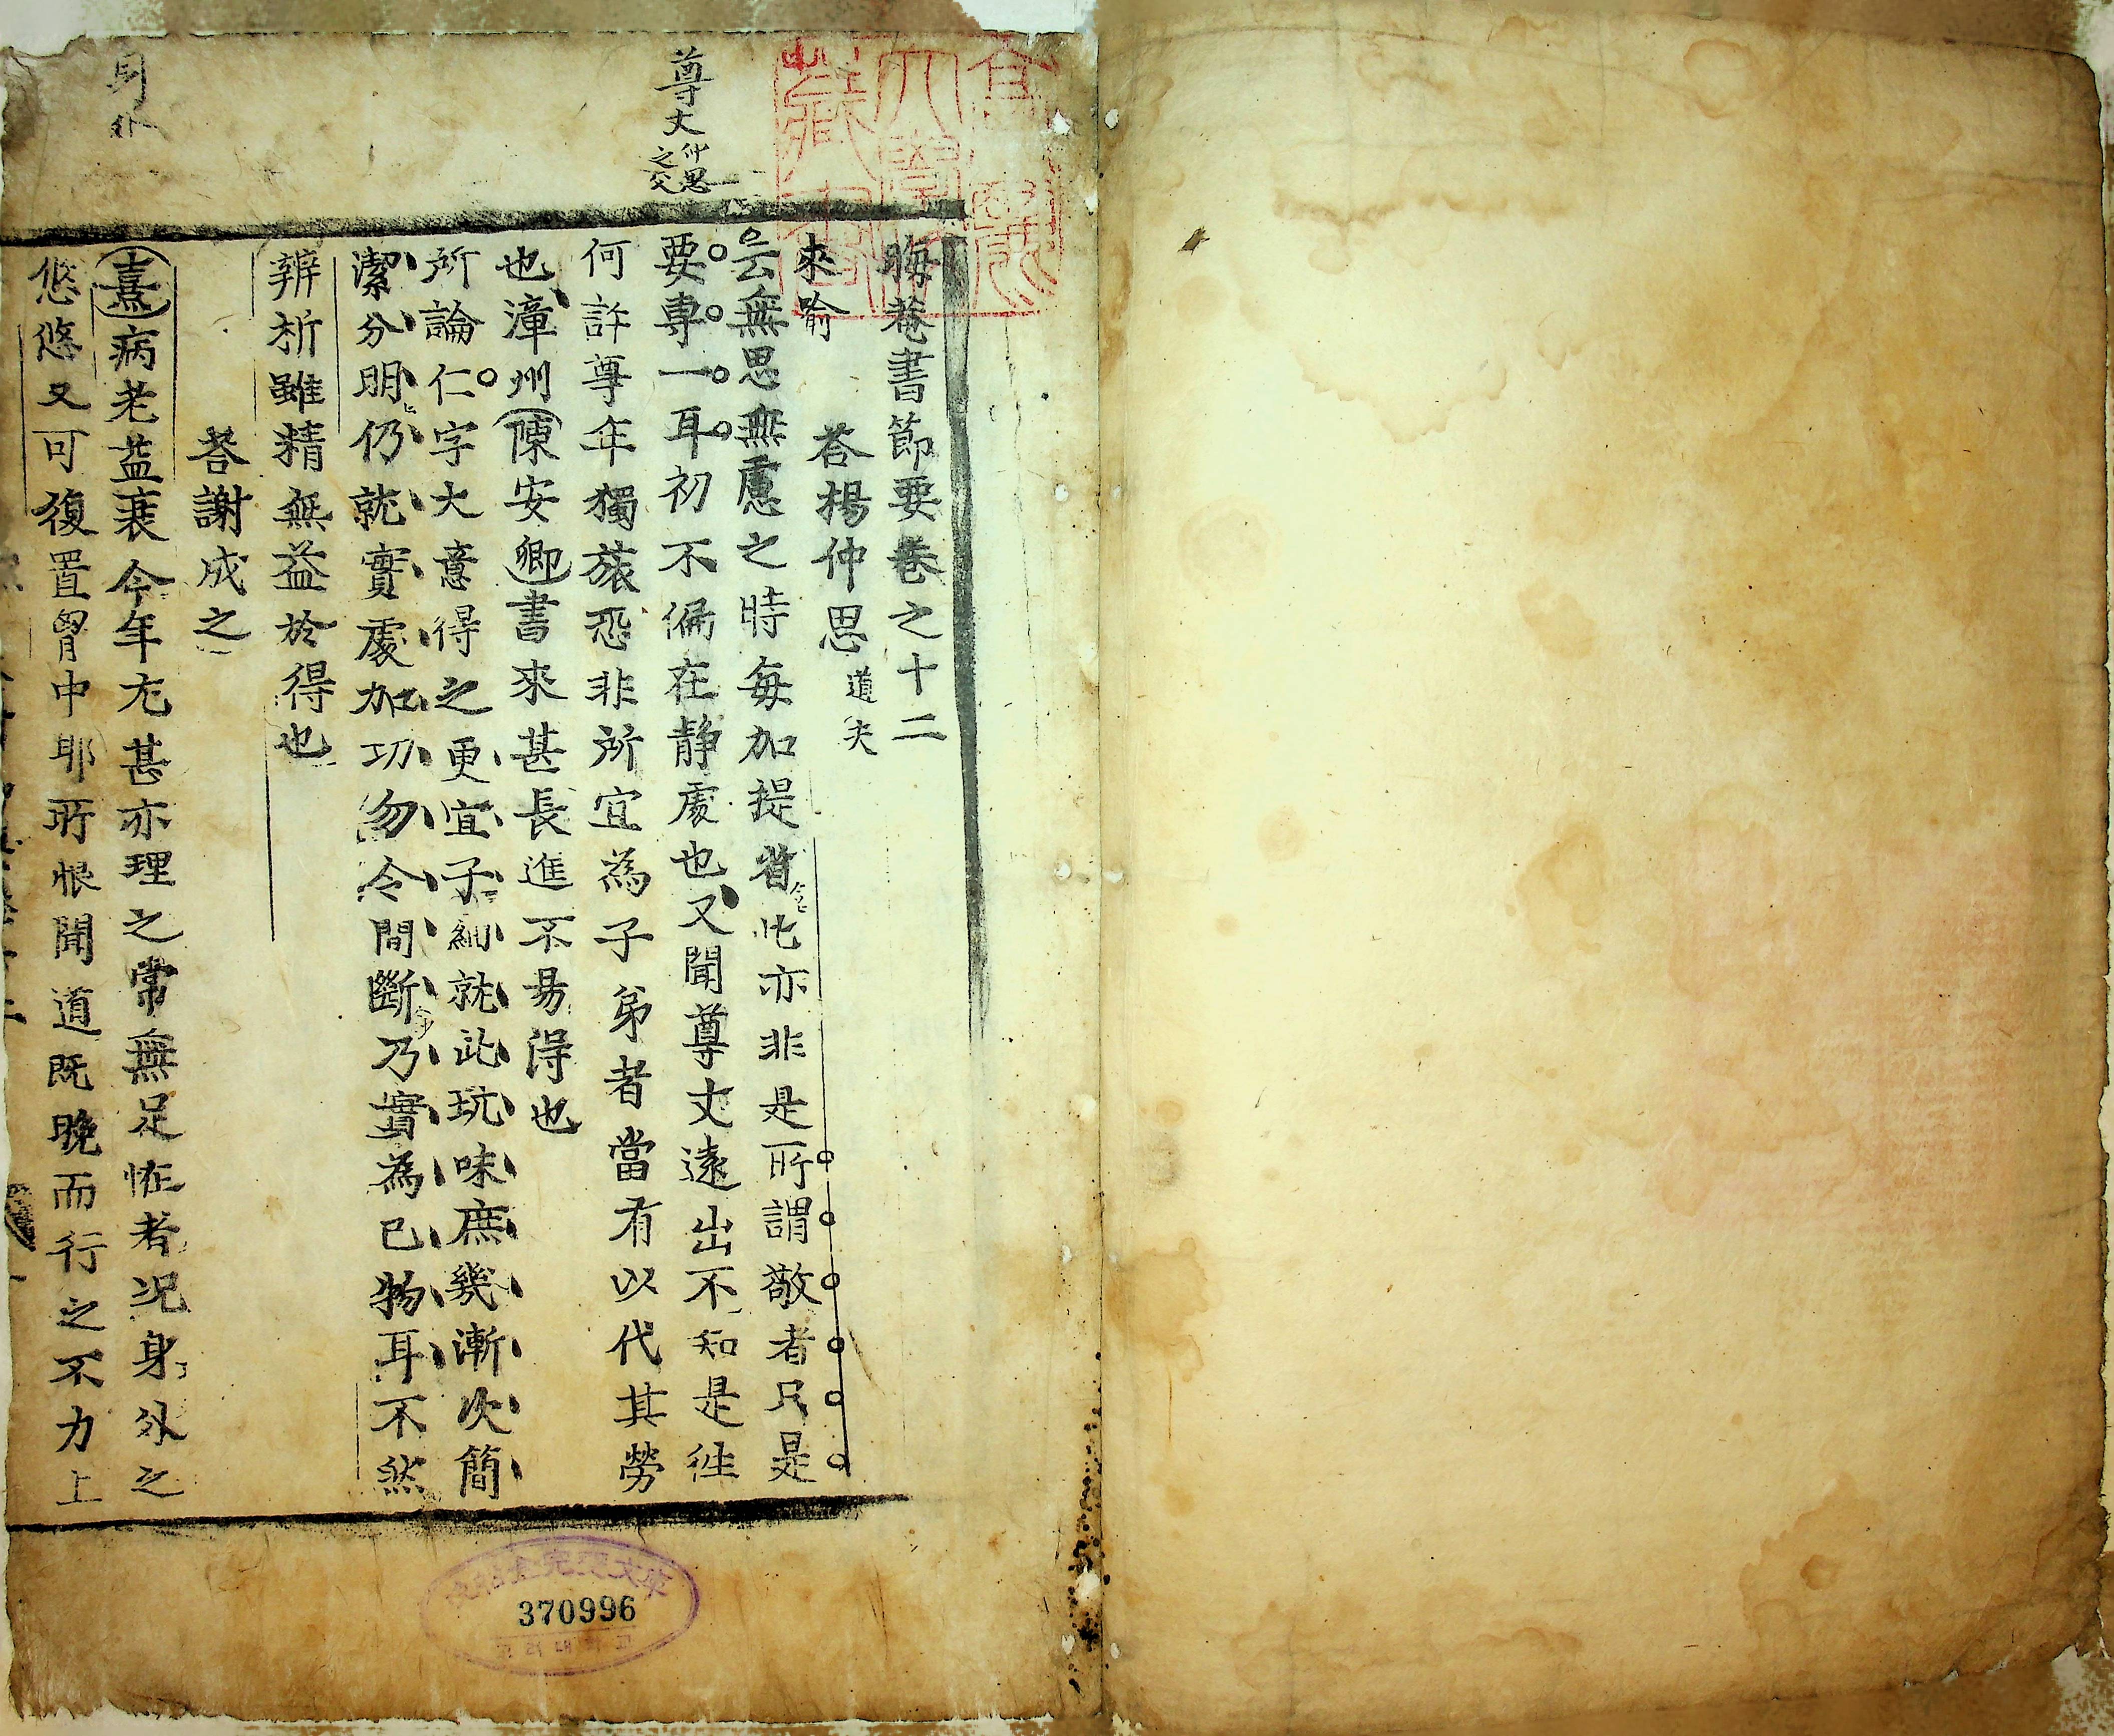 晦菴書節要卷之十二
答楊仲思道夫
來喻
云無思無慮之時每加提省此亦非是所謂敬者只是
要專一耳初不偏在静處也又聞尊丈遠出不知是徃
何許尊年獨旅恐非所宜為子弟者當有以代其勞
也漳州陳安卿書來甚長進不易得也
所論仁字大意得之更宜子細就此玩味庶幾漸次簡
潔分明仍就實處加功勿令間斷乃實為己物耳不然
辨析雖精無益於得也
答謝成之
熹病老益衰今年尤甚亦理之常無足怪者况身外之
悠悠又可復置胷中耶所恨聞道既晚而行之不力上
尊丈仲思之父
370996